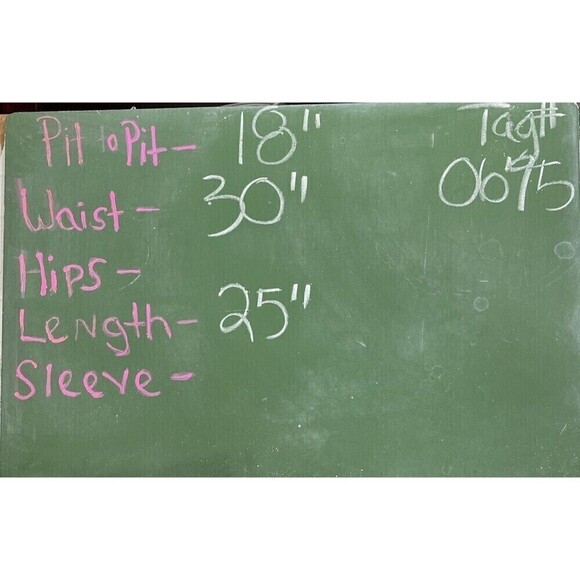 Pit to Pit - 18" Tag#
Waist - 30" 0675
Hips -
Length - 25"
Sleeve -